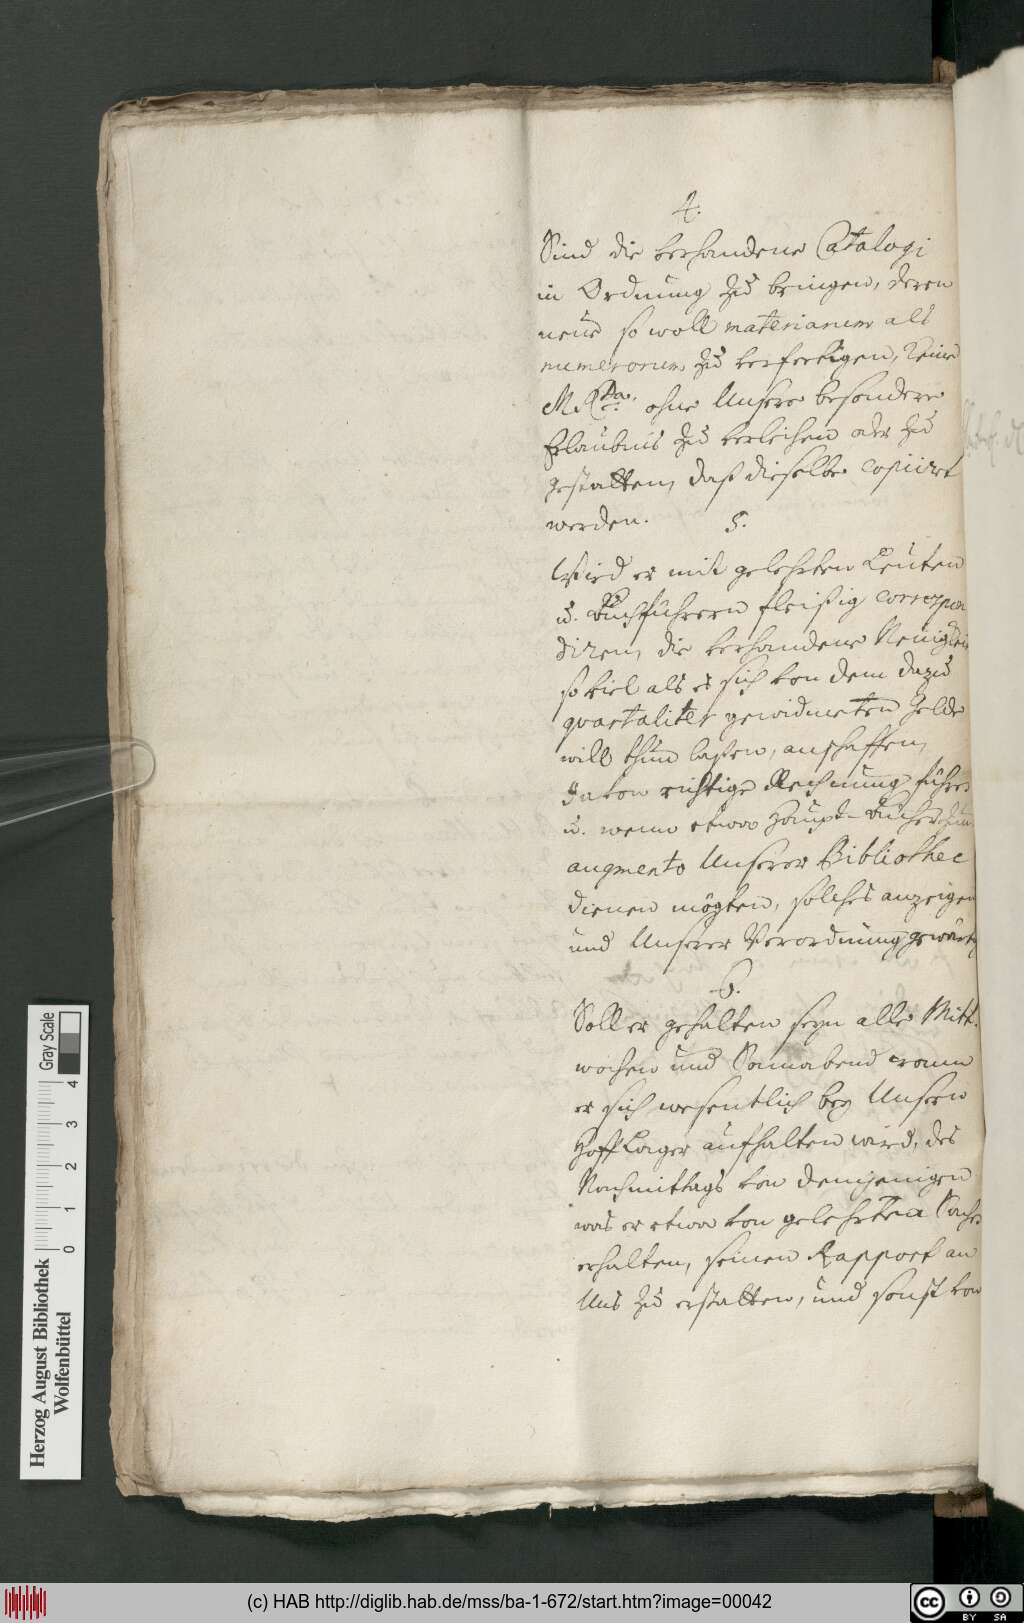 4.
Sind die verhandene Catalogi
in Ordnung zu bringen, deren
neue so woll materiarum als
numerorum zu verfertigen, keine
M.S.cta. ohne Unsere besondere
Erlaubnis zu verleihen oder zu
gestatten, daß dieselbe copiirt
werden.
5.
Wird er mit gelehrten Leuten
u. Buchführern fleißig correspon
diren, die verhandene Neuigkei
so viel als es sich von dem dazu
quartaliter gewidmeten Gelde
will thun laßen, anschaffen,
davon richtige Rechnung führen
u. wenn etwa Haupt-Bücher zum
augmento Unserer Bibliothec
dienen mögten, solches anzeigen
und Unserer Verordnung gewärtig
6.
Soll er gehalten seyn alle Mitt-
wochen und Sonnabend wann
er sich wesentlich bey Unserm
Hoff Lager aufhalten wird, des
Nachmittags von demjenigen
was er etwa von gelehrten Sachen
erhalten, seinen Rapport an
Uns zu erstatten, und sonst von
Herzog August Bibliothek
Wolfenbüttel
0 1 2 3 4 Gray Scale
(c) HAB http://diglib.hab.de/mss/ba-1-672/start.htm?image=00042
cc BY SA